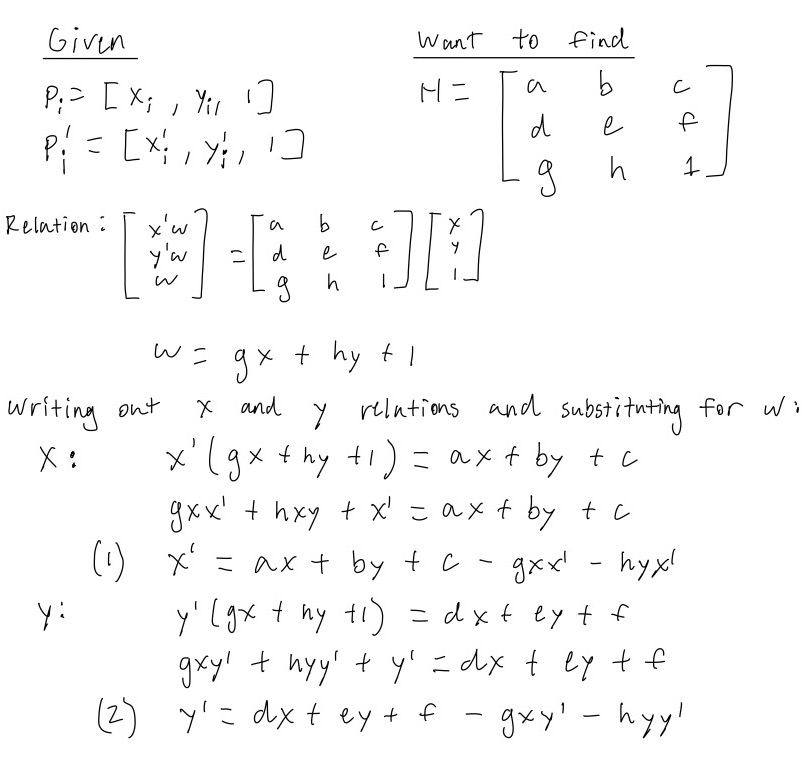 Given
Want to find
Pᵢ = [ xᵢ , yᵢ, 1 ]
H = [ a b c
Pᵢ' = [ xᵢ' , yᵢ', 1 ]
d e f
g h 1 ]
Relation: [ x'w y'w w ] = [ a b c d e f g h 1 ] [ x y 1 ]
w = gx + hy + 1
Writing out x and y relations and substituting for w:
X: x'(gx + hy + 1) = ax + by + c
gxx' + hxy + x' = ax + by + c
(1) x' = ax + by + c - gxx' - hyx'
y: y'(gx + hy + 1) = dx + ey + f
gxy' + hyy' + y' = dx + ey + f
(2) y' = dx + ey + f - gxy' - hyy'